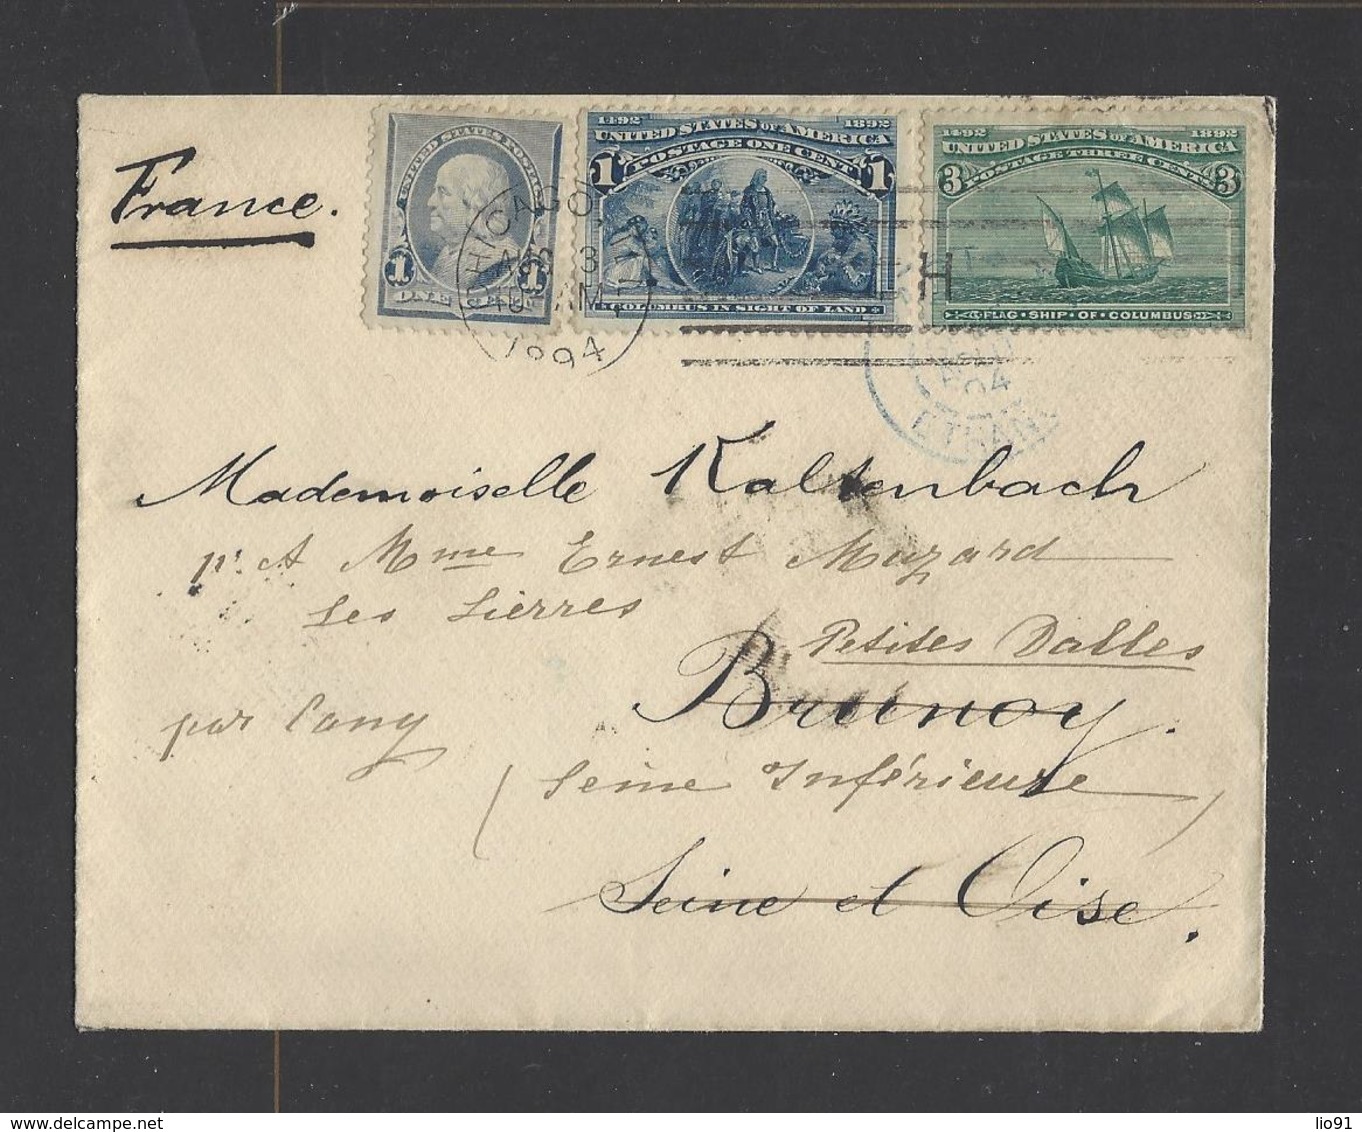 France.
UNITED STATES POSTAGE
1 1
ONE CENT
1492 1892
UNITED STATES OF AMERICA
POSTAGE ONE CENT
1 1
COLUMBUS IN SIGHT OF LAND
1492 1892
UNITED STATES OF AMERICA
POSTAGE THREE CENTS
3 3
FLAG · SHIP · OF · COLUMBUS
CHICAGO, ILL.
AUG 3
1894
H
ETRANG
Mademoiselle Kaltenbach
Mme Ernest Muzard
Les Lierres
Petites Dalles
Brunoy.
par Cany
(Seine Inférieure)
Seine et Oise.
delcampe.net
lio91